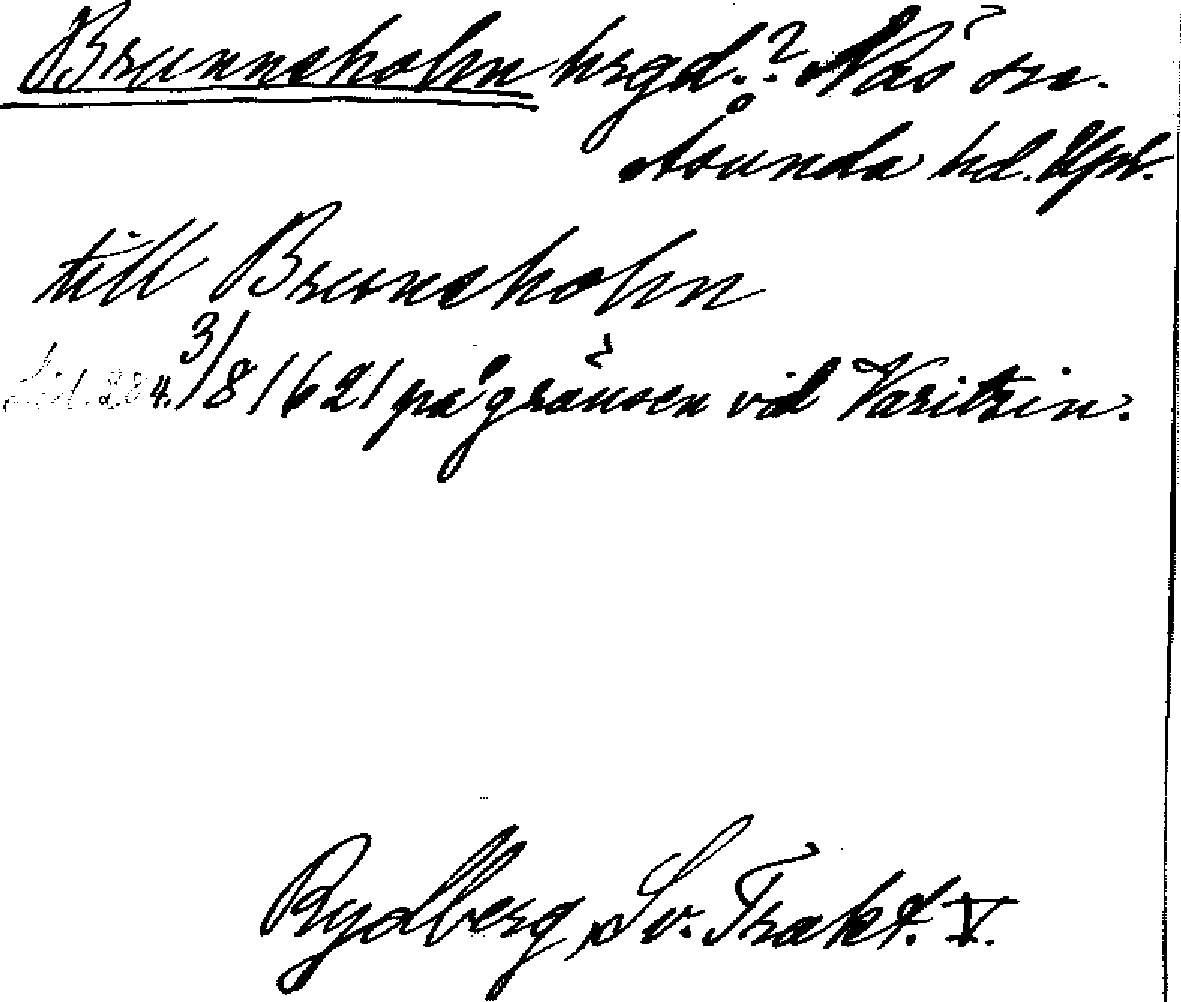 Brunnsholm hrgd.? Näs sn.
Åsunda hd. Upl.
till Brunsholm
Sid. 224. 3/8 1621 på gränsen vid Varitzin.
Rydberg, Sv. Trakt. V.